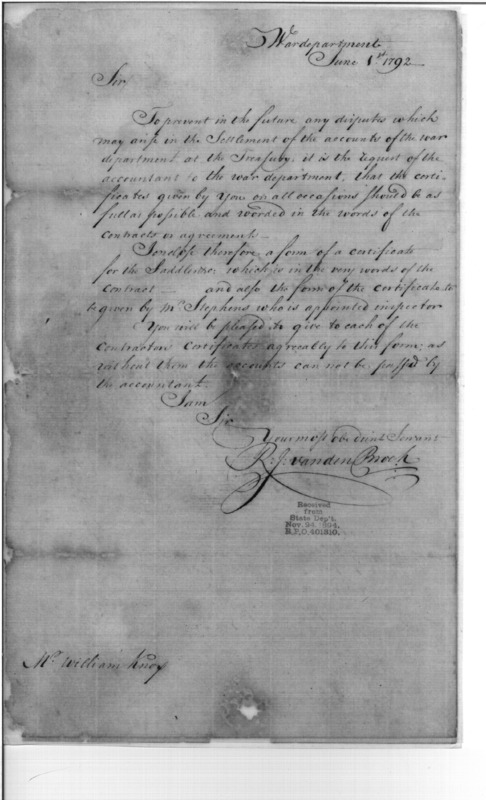 War department
June 1st 1792
Sir
To prevent in the future any disputes which
may arise in the Settlement of the accounts of the war
department at the Treasury, it is the request of the
accountant to the war department, that the certi-
ficates given by You on all occasions should be as
full as possible and worded in the words of the
contracts or agreements
I enclose therefore a form of a certificate
for the Saddlers, which is in the very words of the
contract — and also the form of the certificate to
be given by Mr Stephens who is appointed inspector
You will be pleased to give to each of the
Contractors Certificates agreeably to this form; as
without them the accounts can not be passed by
the accountant.
I am
Sir
Your most obedient Servant
R. J. vanden Broek
Received
from
State Dep't.
Nov. 24, 1894.
R.P.O. 401810.
Mr William Knox